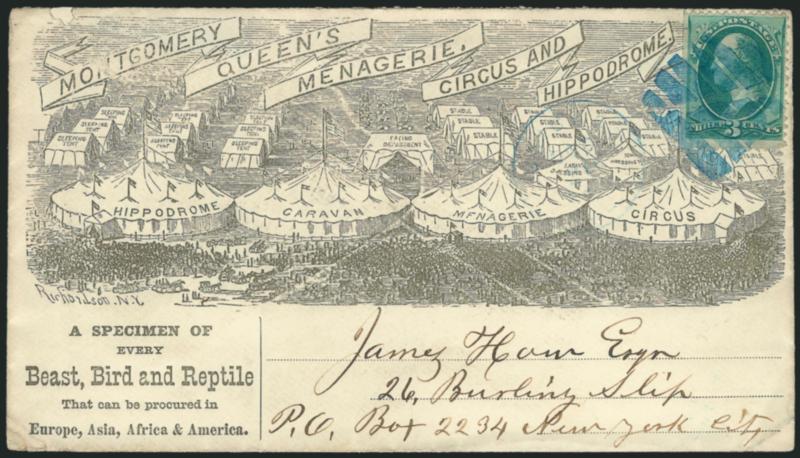 MONTGOMERY QUEEN'S MENAGERIE, CIRCUS AND HIPPODROME.
U.S. POSTAGE
THREE 3 CENTS
SLEEPING TENT
SLEEPING TENT
SLEEPING TENT
SLEEPING TENT
STABLE STABLE STABLE
STABLE STABLE STABLE
HIPPODROME CARAVAN MENAGERIE CIRCUS
Richardson. N.Y.
A SPECIMEN OF
EVERY
Beast, Bird and Reptile
That can be procured in
Europe, Asia, Africa & America.
James How Esqr
26, Burling Slip
P.O. Box 2234 New York City